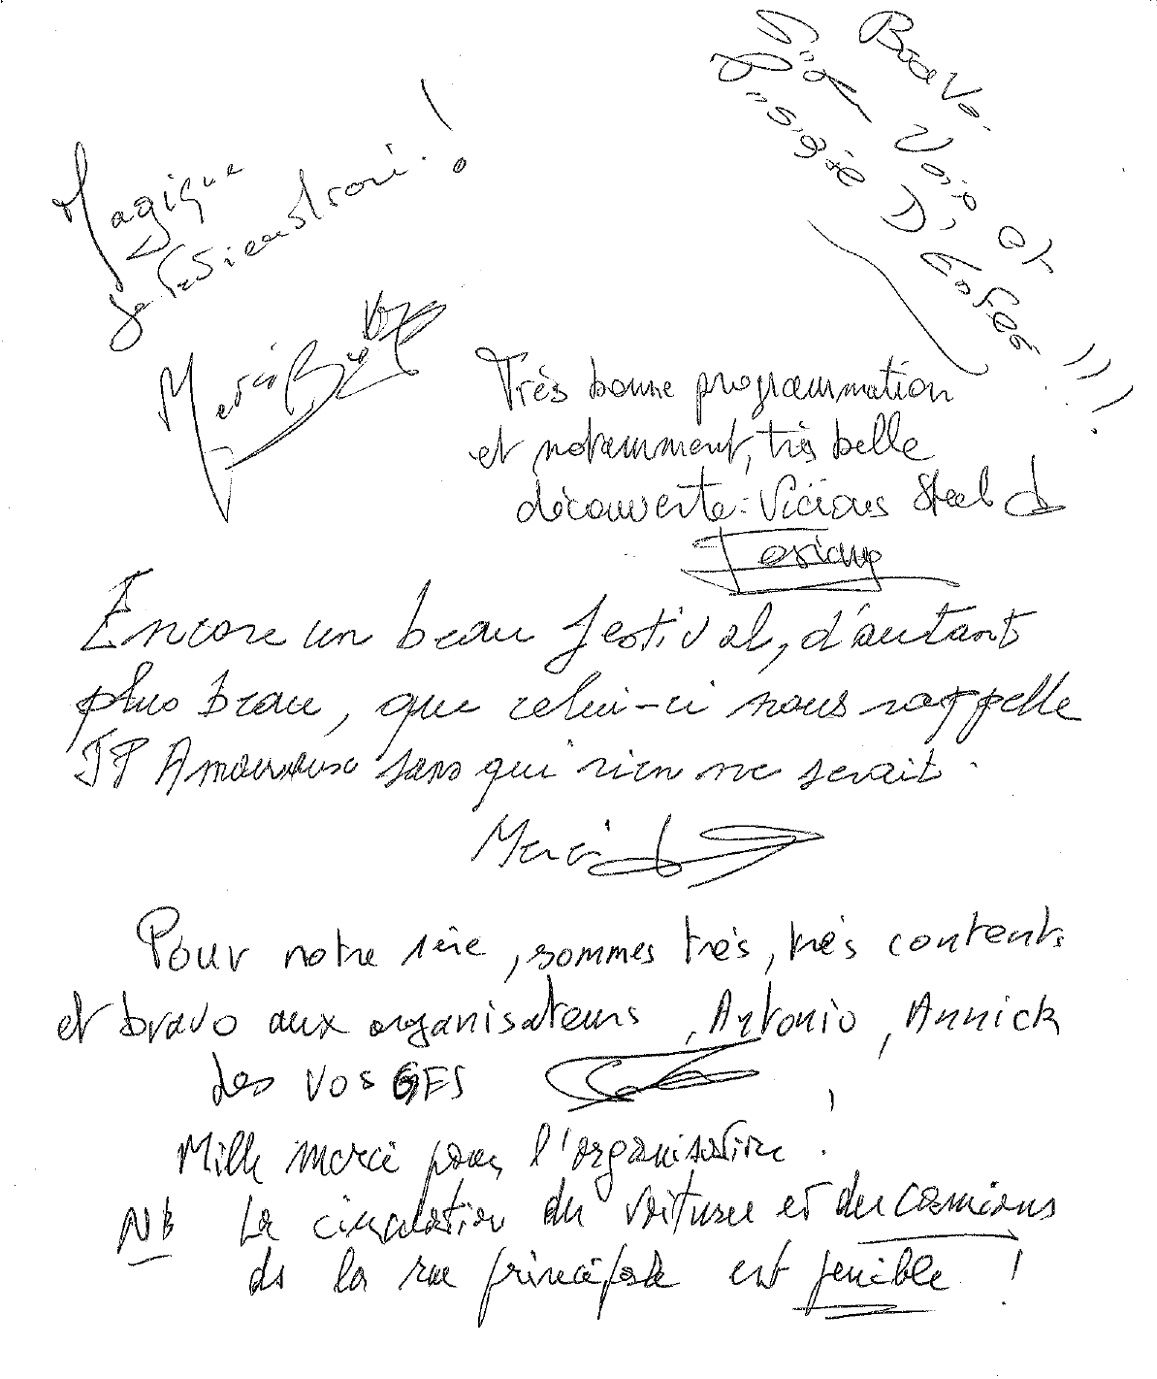 Magique
Je reviendrai !
Merci
Bravo.
Voix et
D'Enfer !!!
Très bonne programmation
et notamment, très belle
découverte : Vicious Steel
Encore un beau festival, d'autant
plus beau, que celui-ci nous rappelle
JP Amouroux sans qui rien ne serait.
Merci
Pour notre 1ère, sommes très, très contents
et bravo aux organisateurs, Antonio, Annick
des VOSGES
Mille merci pour l'organisation !
NB La circulation des voitures et des camions
ds la rue principale est penible !